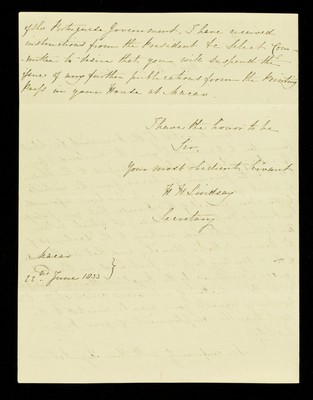 of the Portuguese Government. I have received
instructions from the President &c Select Com-
mittee to desire that you will suspend the
issue of any further publications from the Printing
Press in your House at Macao
I have the honor to be
Sir,
Your most obedient Servant
H H Lindsay
Secretary
Macao
22nd June 1833